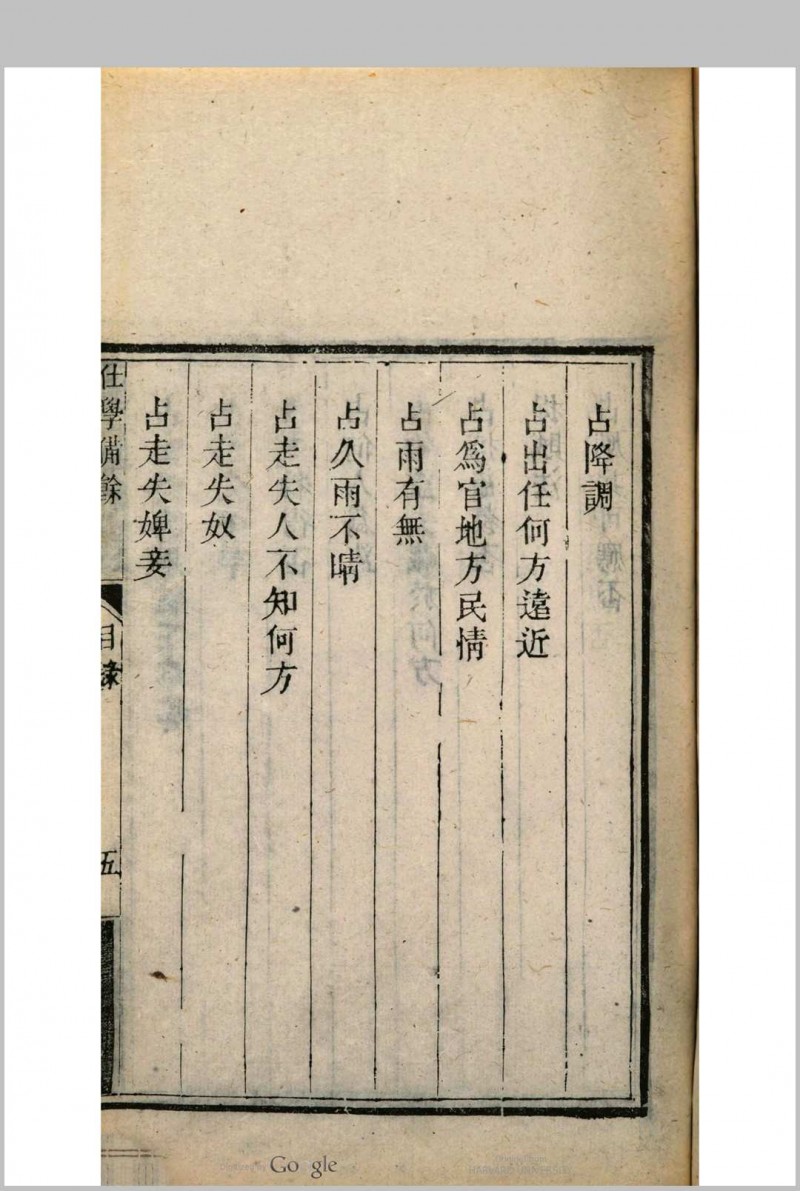 占降調
占出任何方遠近
占爲官地方民情
占雨有無
占久雨不晴
占走失人不知何方
占走失奴
占走失婢妾
仕學備餘
目錄
五
Google